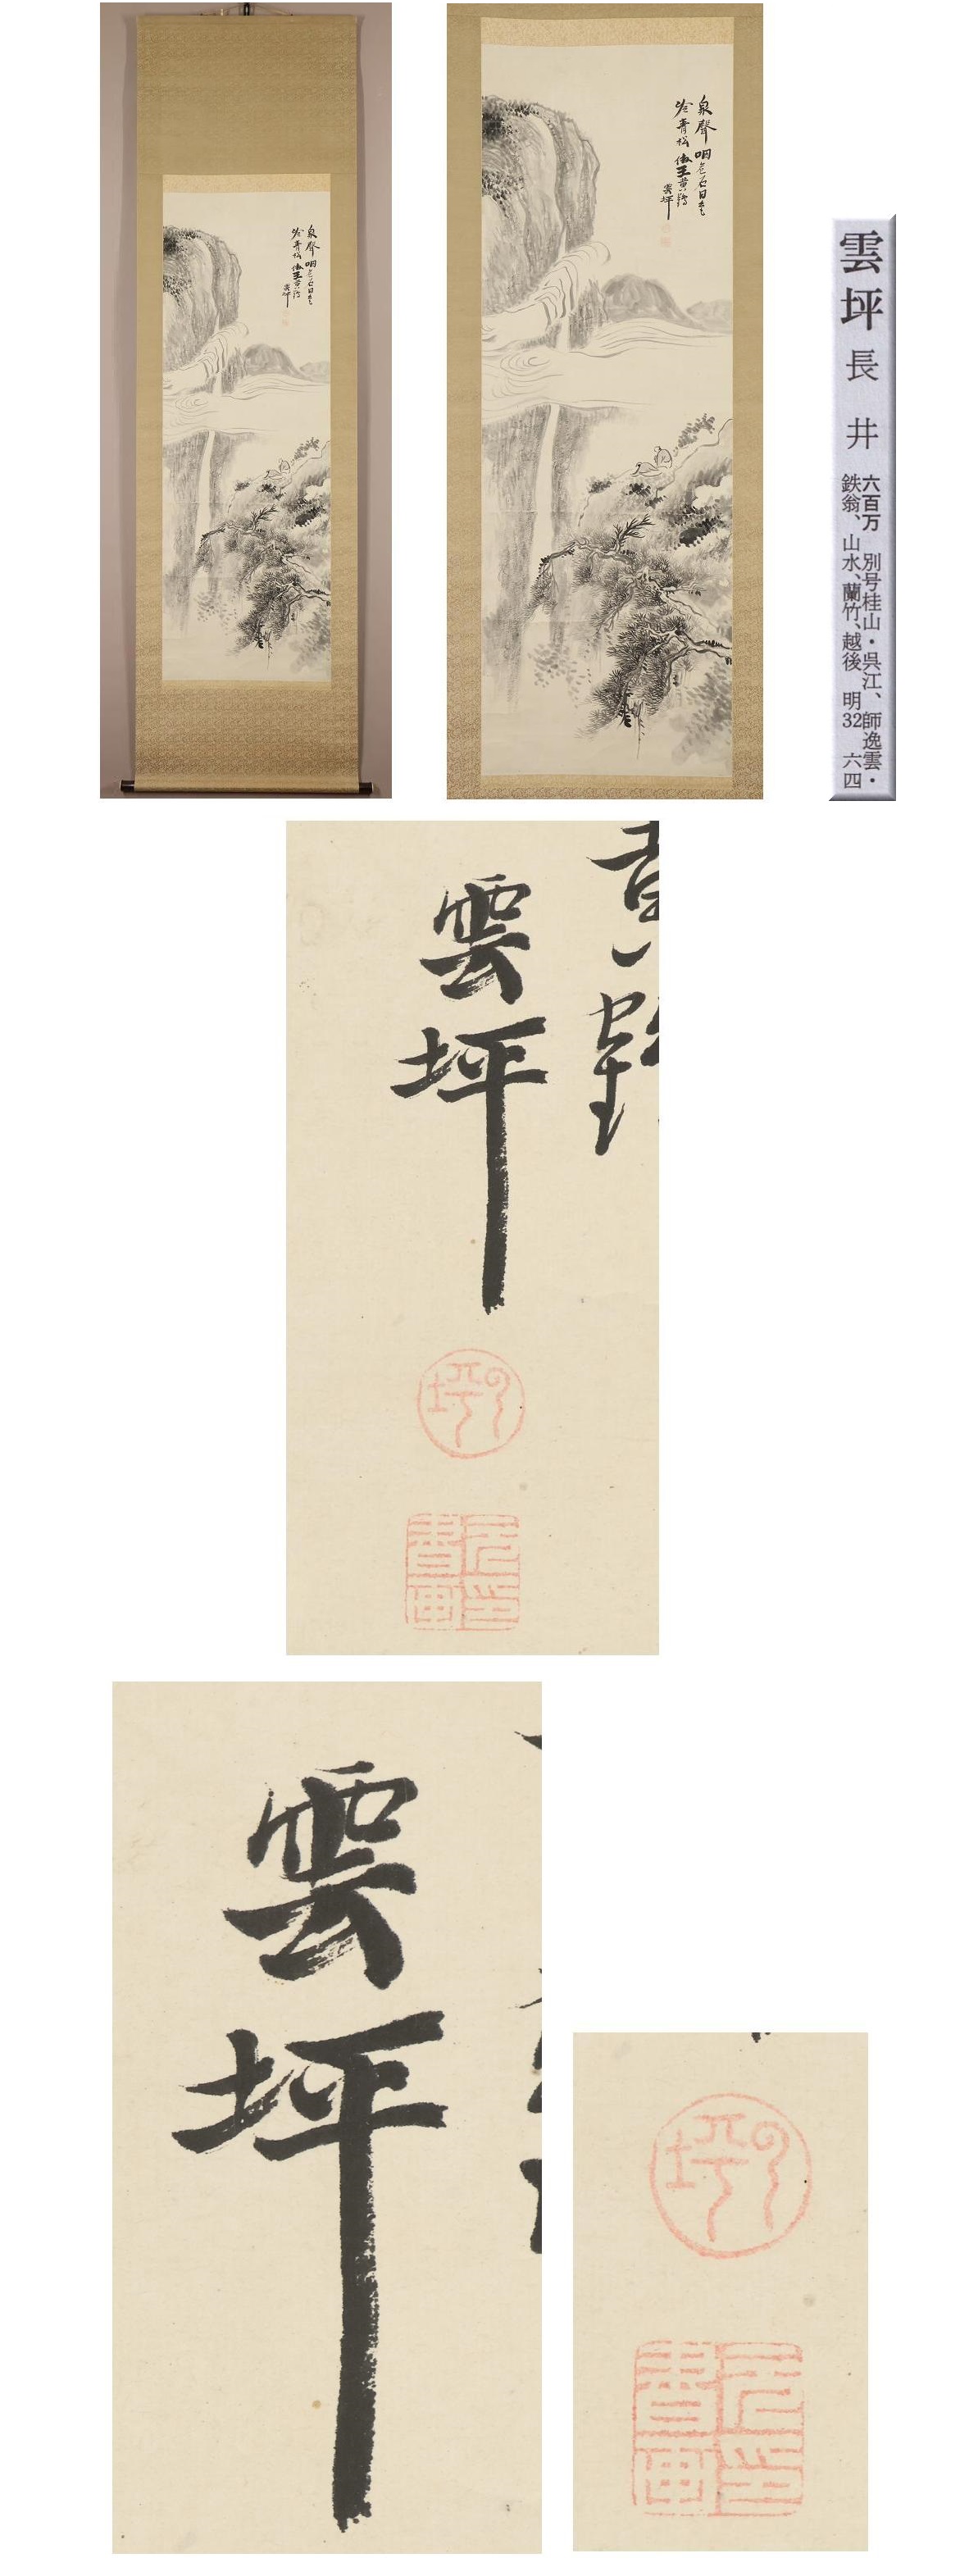 泉聲咽危石日色
冷青松倣王黄鶴
雲坪
雲坪
長井
六百万 別号桂山・呉江、師逸雲・
鉄翁、山水、蘭竹、越後 明32 六四
黄鶴
雲坪
雲坪